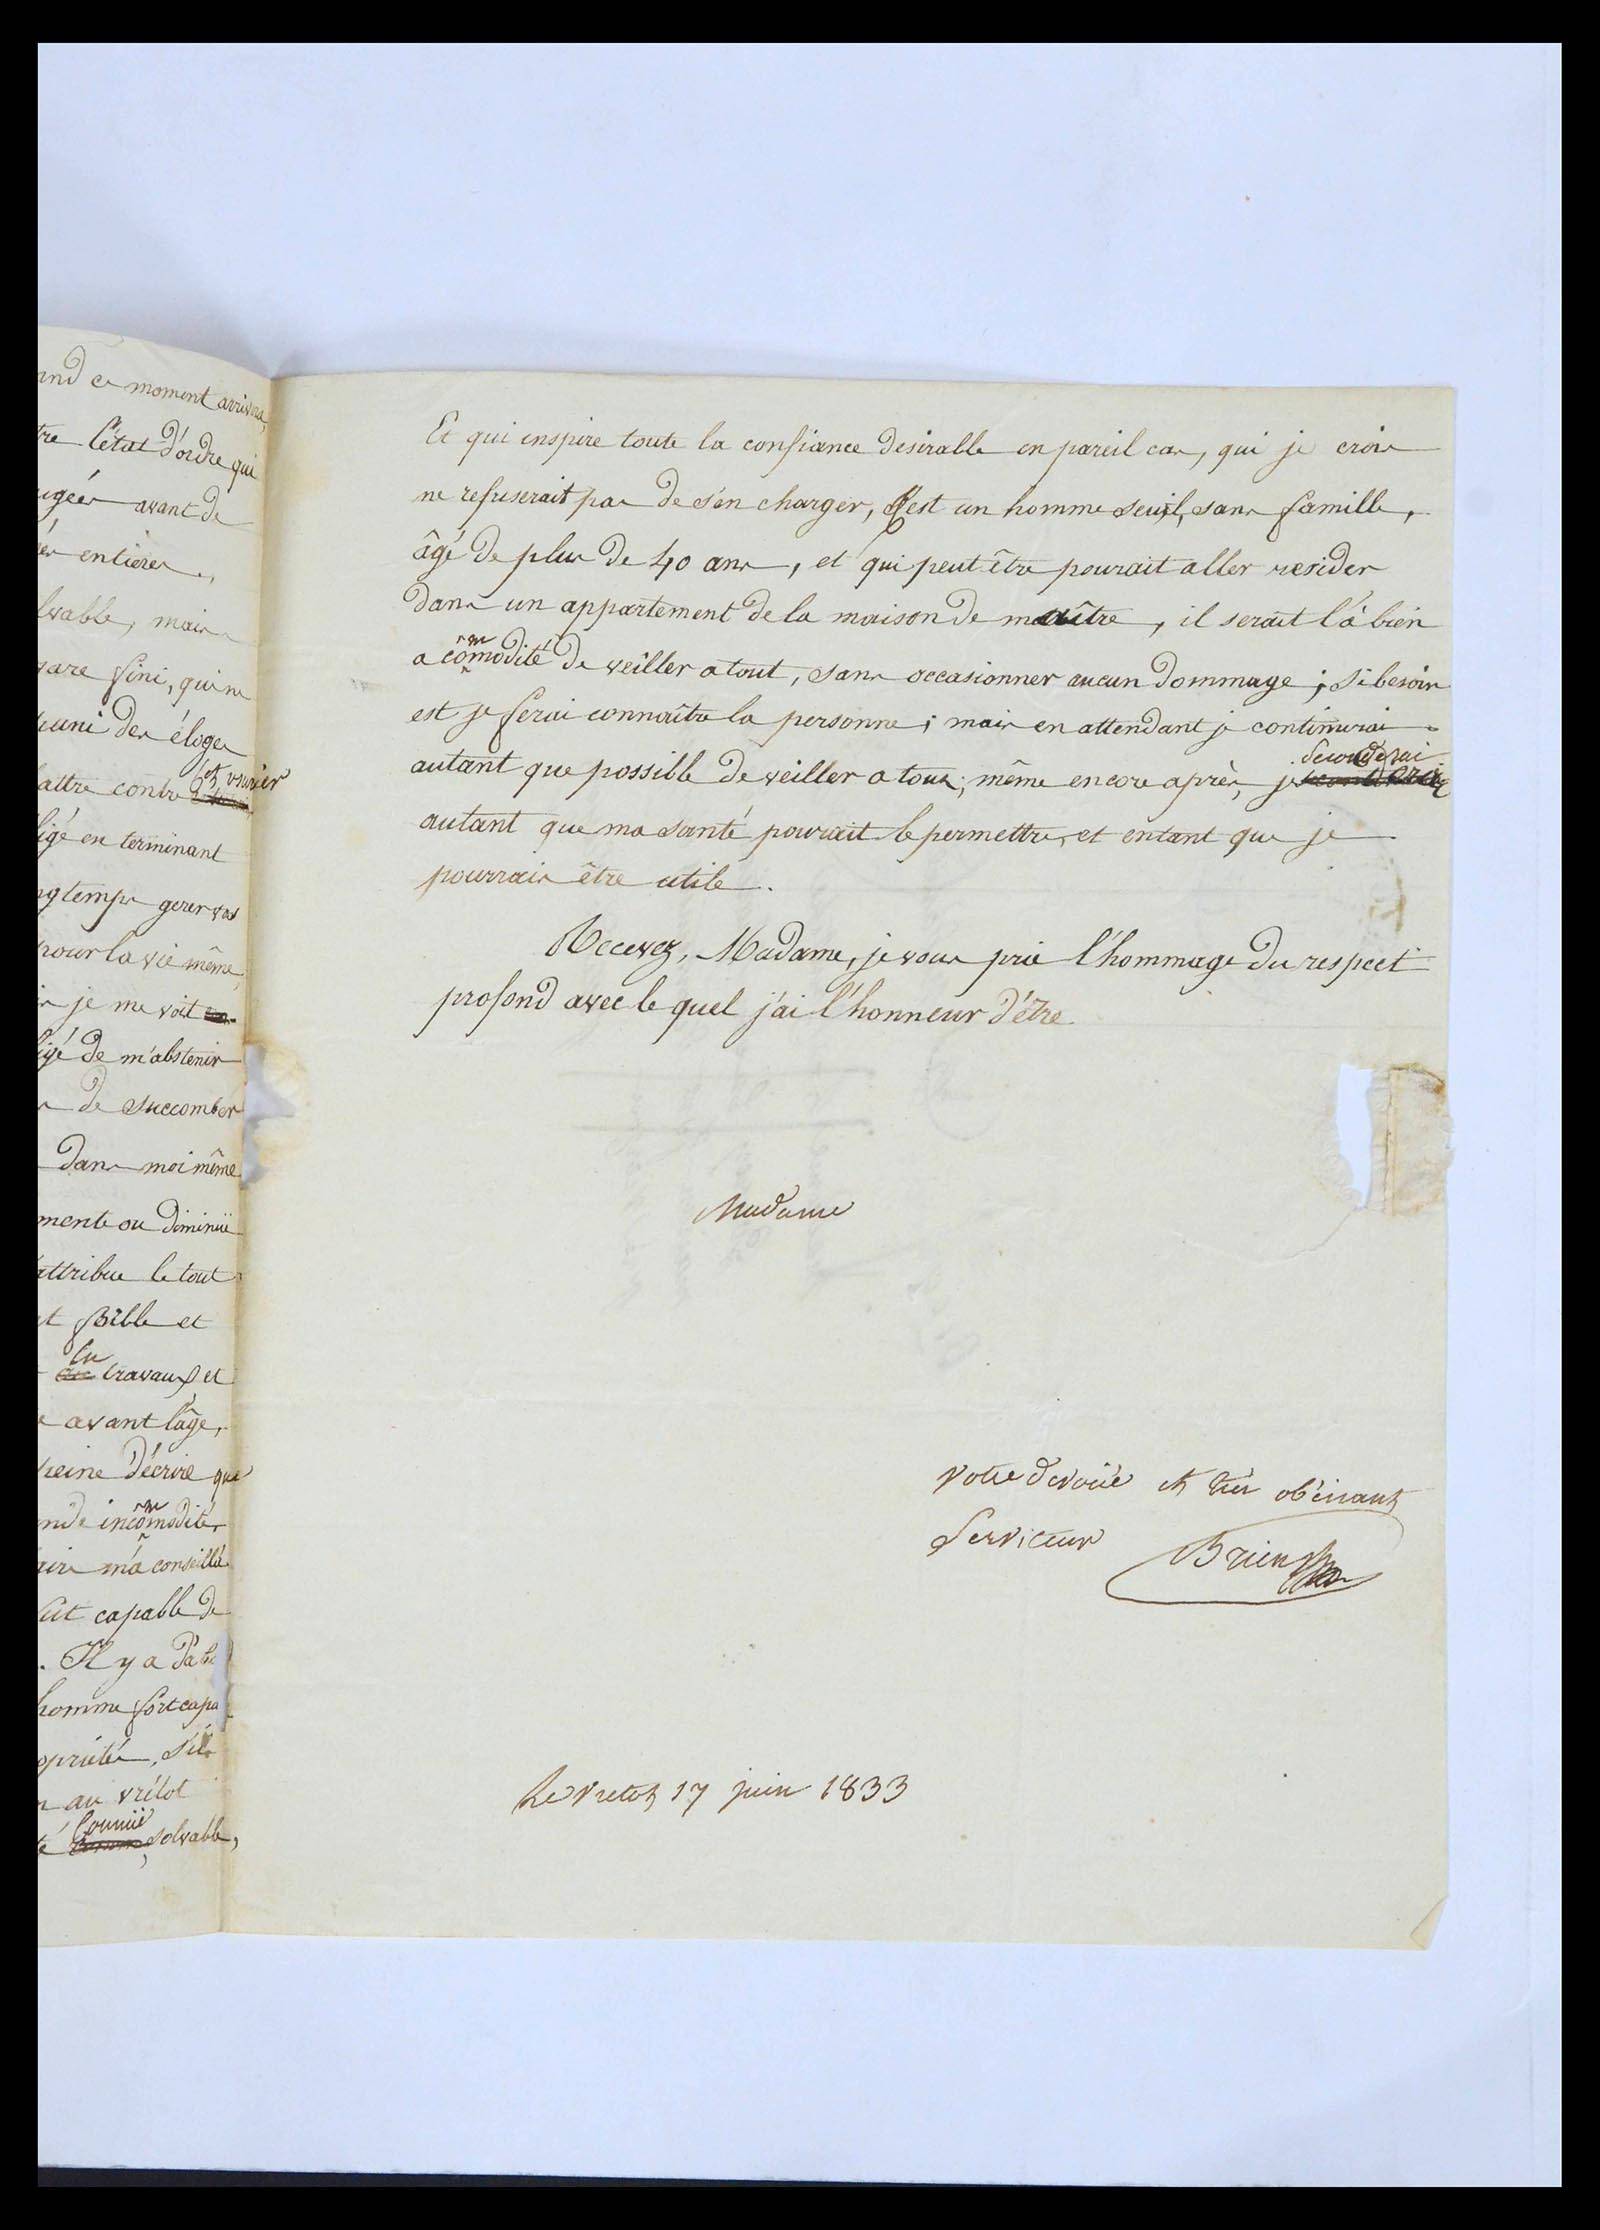 and ce moment arrivera,
tre l'état d'ordre qui
ugées avant de
és entieres,
lvable, mais
gare fini, qui ne
puni des éloges
attre contre
et usurier
ligé en terminant
ngtemps gerer vos
pour la vie même,
is je me voit
ligé de m'abstenir
de succomber
dans moi même
mente ou diminuë
attribue le tout
t foible et
en
travaux et
avant l'âge,
peine d'écrire que
nde incomodité,
m
aire m'a conseillé
fût capable de
. Il y a d'a
homme fort capa
opriétés, s'il
au vrétot
té solvable,
connuë
Et qui inspire toute la confiance desirable en pareil cas, qui je crois
ne refuserait pas de s'en charger, C'est un homme seul, sans famille,
âgé de plus de 40 ans, et qui peut être pourait aller resider
dans un appartement de la maison de maître, il serait l'à bien
m
a comodité de veiller a tout, sans occasionner aucun dommage; si besoin
est je ferai connaître la personne; mais en attendant je continurai
seconderai
autant que possible de veiller a tout; même encore après, je
autant que ma santé pourait le permettre, et entant que je
pourrais être utile.
Recevez, Madame, je vous prie l'hommage du respect
profond avec le quel j'ai l'honneur d'être
Madame
votre devoüé et très obéissant
Serviteur
Brien
Le vretot 17 juin 1833